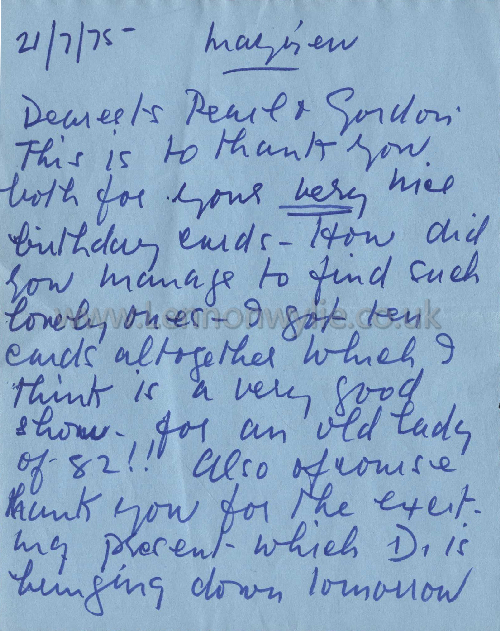 21/7/75- Mayview
Dearests Pearl & Gordon.
This is to thank you
both for your very nice
birthday cards - How did
you manage to find such
lovely ones - I got ten
www.Lennonwylie.co.uk
cards altogether which I
think is a very good
show - for an old lady
of 82!! Also of course
thank you for the excit-
ing present - which D. is
bringing down tomorrow